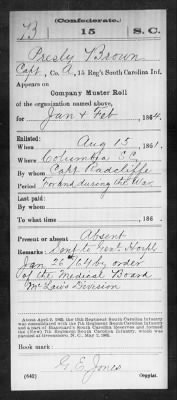 (Confederate.)
B 15 S. C.
Presly Brown
Capt, Co. A, 15 Reg't South Carolina Inf.
Appears on
Company Muster Roll
of the organization named above,
for Jan & Feb, 1864.
Enlisted:
When Aug 15, 1861.
Where Columbia S.C.
By whom Capt Radcliffe
Period For and during the War
Last paid:
By whom
To what time , 186 .
Present or absent Absent
Remarks: Sent to Genl Hospl
Jan 26 '64 by order
of the Medical Board
McLaws Division
About April 9, 1865, the 15th Regiment South Carolina Infantry
was consolidated with the 7th Regiment South Carolina Infantry
and a part of
South Carolina Reserves and formed the
(New) 7th Regiment South Carolina Infantry, which was
paroled at Greensboro, N. C., May 2, 1865.
Book mark:
G. E. Jones
(642) Copyist.